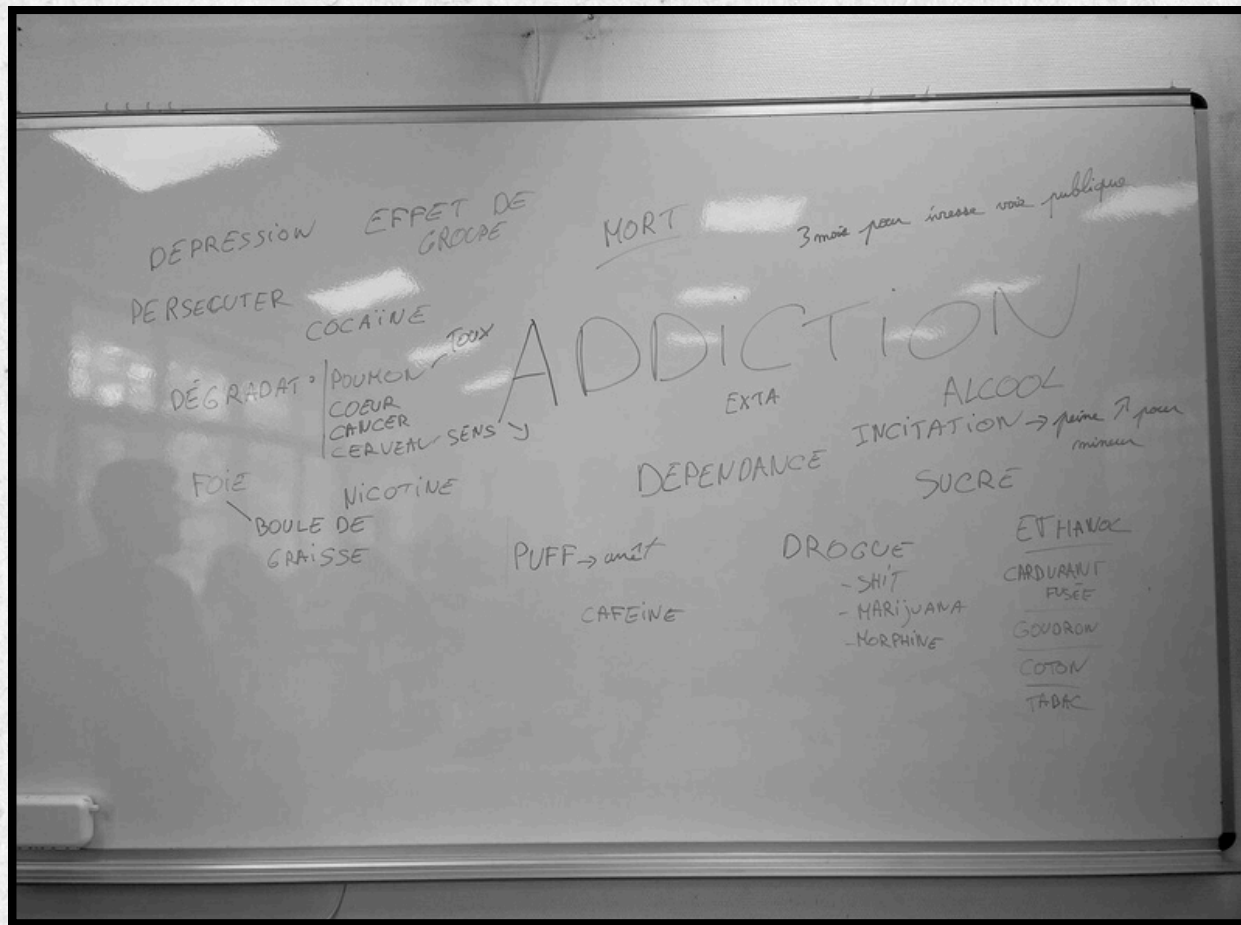 DEPRESSION
EFFET DE
GROUPE
MORT
3 mois pour ivresse voie publique
PERSECUTER
COCAÏNE
ADDICTION
DÉGRADAT°
POUMON - TOUX
COEUR
CANCER
CERVEAU - SENS
EXTA
ALCOOL
INCITATION → peine ↗ pour
mineur
FOIE
BOULE DE
GRAISSE
NICOTINE
DEPENDANCE
SUCRE
PUFF → arrêt
CAFEINE
DROGUE
- SHIT
- MARIJUANA
- MORPHINE
ETHANOL
CARDURANT
FUSÉE
GOUDRON
COTON
TABAC